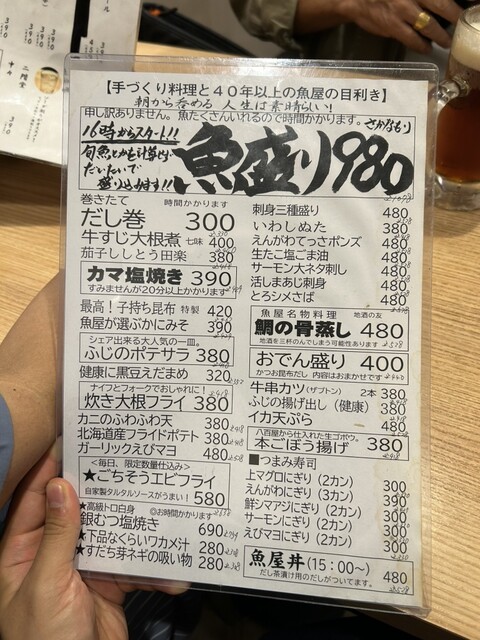 【手づくり料理と４０年以上の魚屋の目利き】
朝から呑める 人生は素晴らしい!
申し訳ありません。魚たくさんいれるので時間かかります。さかなもり
16時からスタート!!
魚盛り980
盛り込みます!!
巻きたて 時間かかります
だし巻 300
牛すじ大根煮 七味 400
茄子ししとう田楽 380
カマ塩焼き 390
すみませんが20分以上かかります
最高！子持ち昆布 特製 420
魚屋が選ぶかにみそ 390
シェア出来る大人気の一皿。
ふじのポテサラ 380
健康に黒豆えだまめ 320
ナイフとフォークでおしゃれに！
炊き大根フライ 380
カニのふわふわ天 380
北海道産フライドポテト 380
ガーリックえびマヨ 480
<毎日、限定数量仕込み>
★ごちそうエビフライ
自家製タルタルソースがうまい！ 580
★高級トロ白身 ◎お時間かかります
銀むつ塩焼き 690
★下品なくらいワカメ汁 280
★すだち芽ネギの吸い物 280
刺身三種盛り 480
いわしぬた 380
えんがわてっさポンズ 480
生たこ塩ごま油 480
サーモン大ネタ刺し 480
活しまあじ刺身 480
とろシメさば 480
魚屋名物料理 地酒の友
鯛の骨蒸し 480
地酒を三杯のんでしまう可能性あります
おでん盛り 400
かつお昆布だし 内容はおまかせです
牛串カツ（ザブトン） 2本 380
ふじの揚げ出し（健康） 380
イカ天ぷら 480
八百屋から仕入れた生ゴボウ。
本ごぼう揚げ 380
■つまみ寿司
上マグロにぎり（2カン） 300
えんがわにぎり（3カン） 390
鮮シマアジにぎり（2カン） 300
サーモンにぎり（2カン） 300
エビマヨにぎり（2カン） 300
魚屋丼（15：00～）
だし茶漬け用のだしがついてます。 480